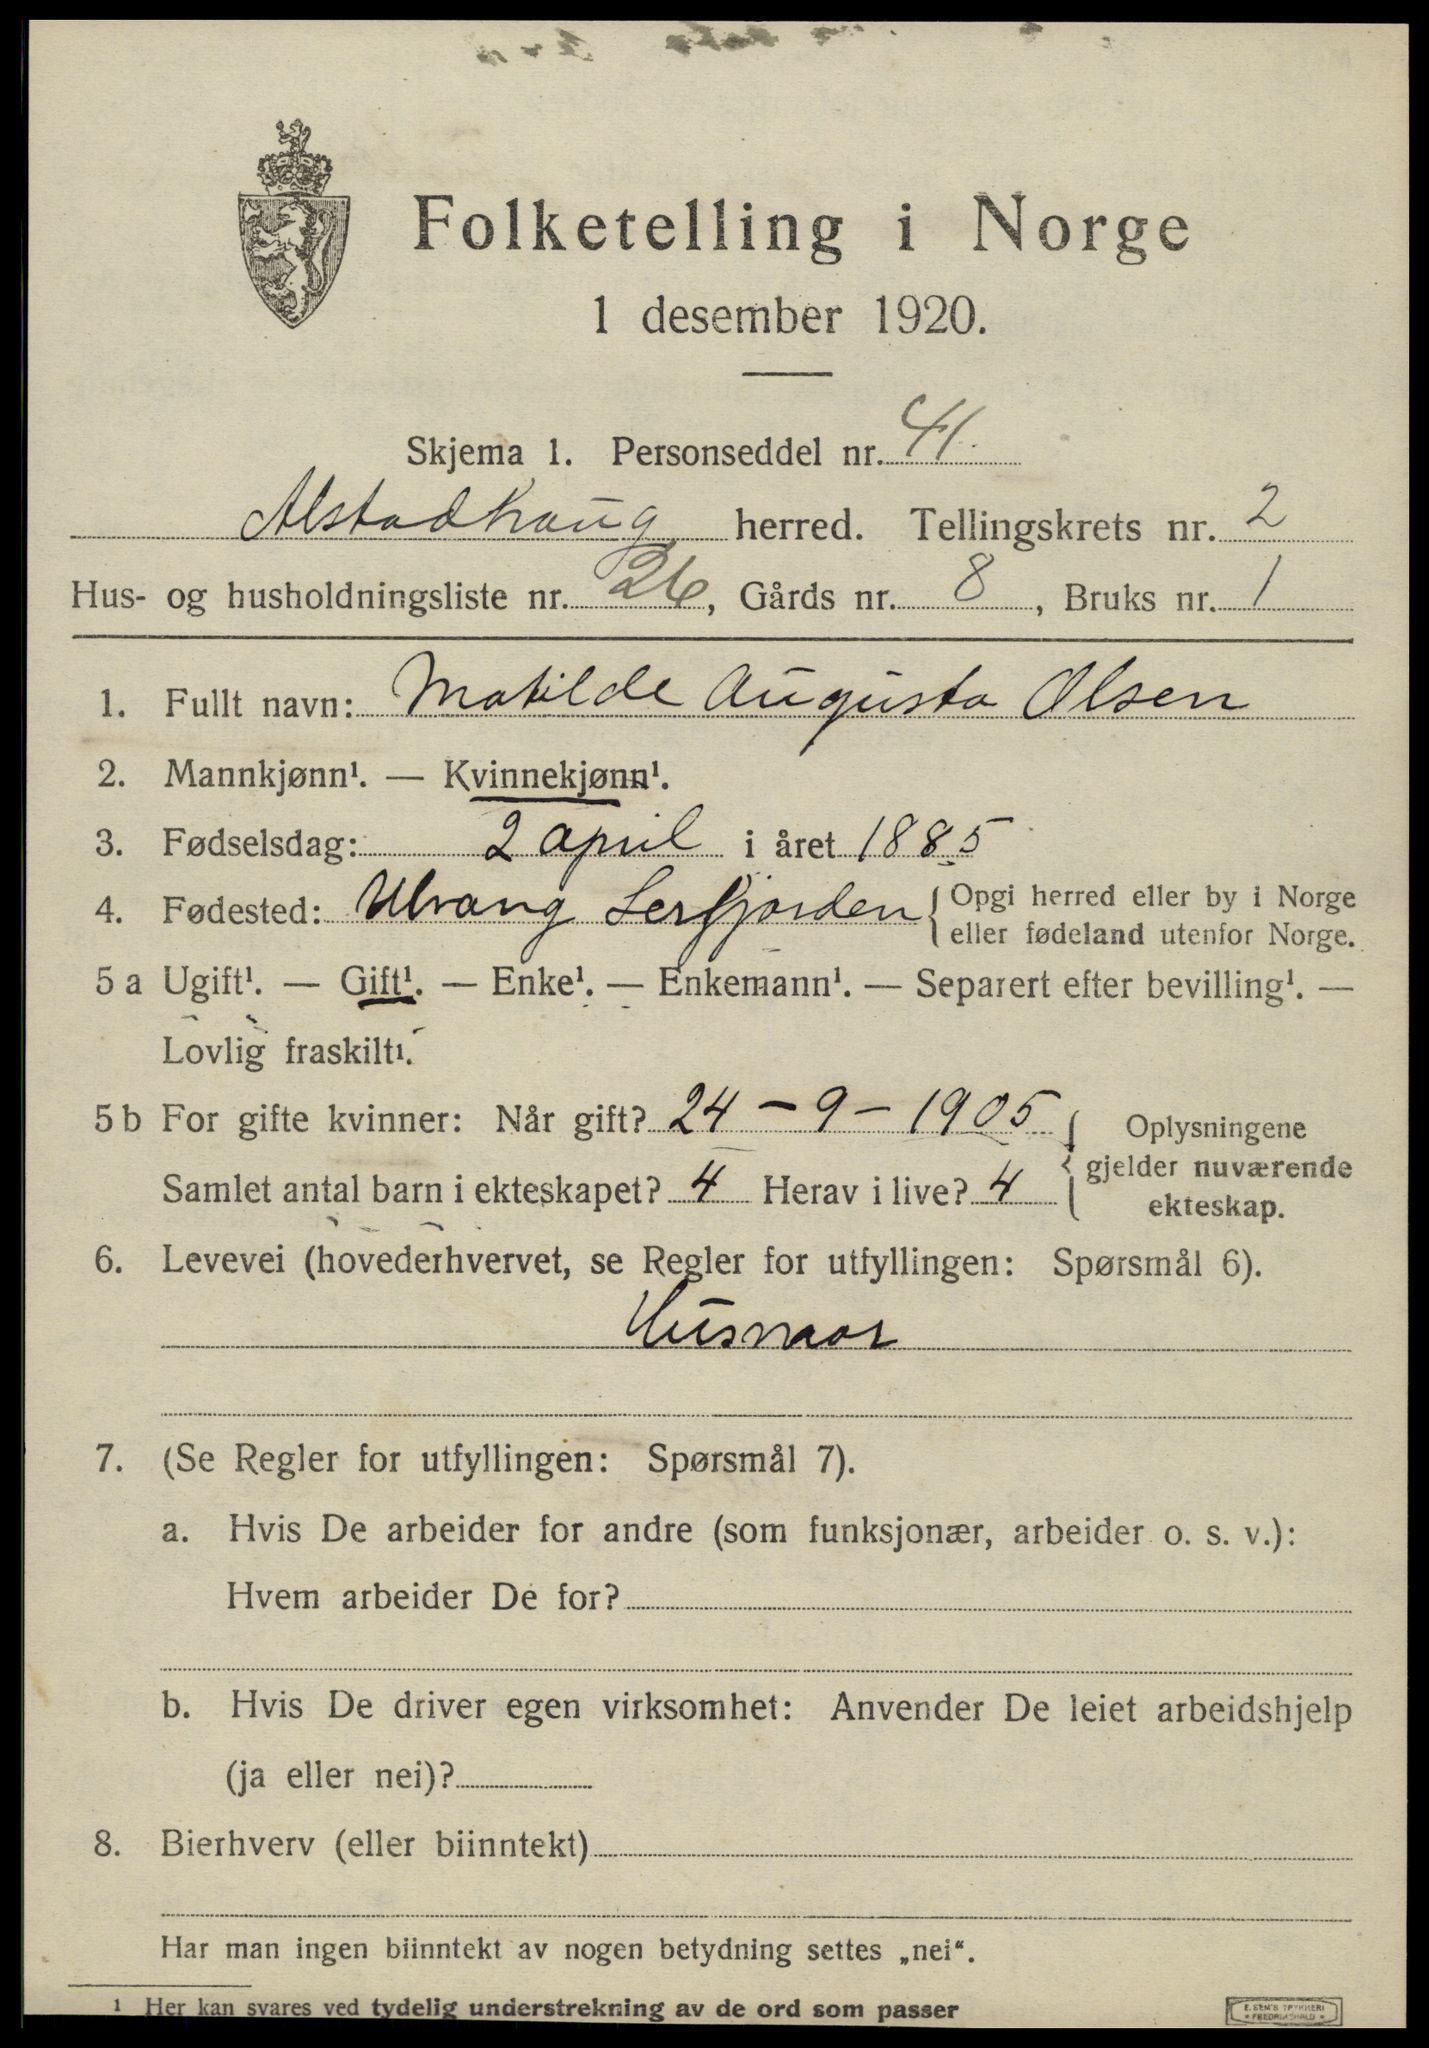 Folketelling i Norge
1 desember 1920.
Skjema 1. Personseddel nr. 41.
Alstadhaug herred. Tellingskrets nr. 2
Hus- og husholdningsliste nr. 26, Gårds nr. 8, Bruks nr. 1
1. Fullt navn: Matilde Augusta Olsen
2. Mannkjønn¹. — Kvinnekjønn¹.
3. Fødselsdag: 2 april i året 1885
4. Fødested: Ulvang Lerfjorden { Opgi herred eller by i Norge
eller fødeland utenfor Norge.
5 a Ugift¹. — Gift¹. — Enke¹. — Enkemann¹. — Separert efter bevilling¹. —
Lovlig fraskilt¹.
5 b For gifte kvinner: Når gift? 24 – 9 – 1905 Oplysningene
Samlet antal barn i ekteskapet? 4 Herav i live? 4 gjelder nuværende
ekteskap.
6. Levevei (hovederhvervet, se Regler for utfyllingen: Spørsmål 6).
Husmor
7. (Se Regler for utfyllingen: Spørsmål 7).
a. Hvis De arbeider for andre (som funksjonær, arbeider o. s. v.):
Hvem arbeider De for?
b. Hvis De driver egen virksomhet: Anvender De leiet arbeidshjelp
(ja eller nei)?
8. Bierhverv (eller biinntekt)
Har man ingen biinntekt av nogen betydning settes „nei“.
¹ Her kan svares ved tydelig understrekning av de ord som passer
E. SEM'S TRYKKERI
* FREDRIKSHALD *